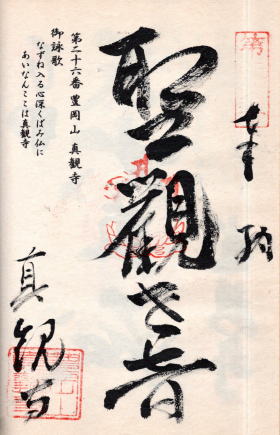 奉拝
聖観世音
第二十六番 豊岡山 真観寺
御詠歌
なずね入る心深くばみ仏に
あいなんここは真観寺
真観寺